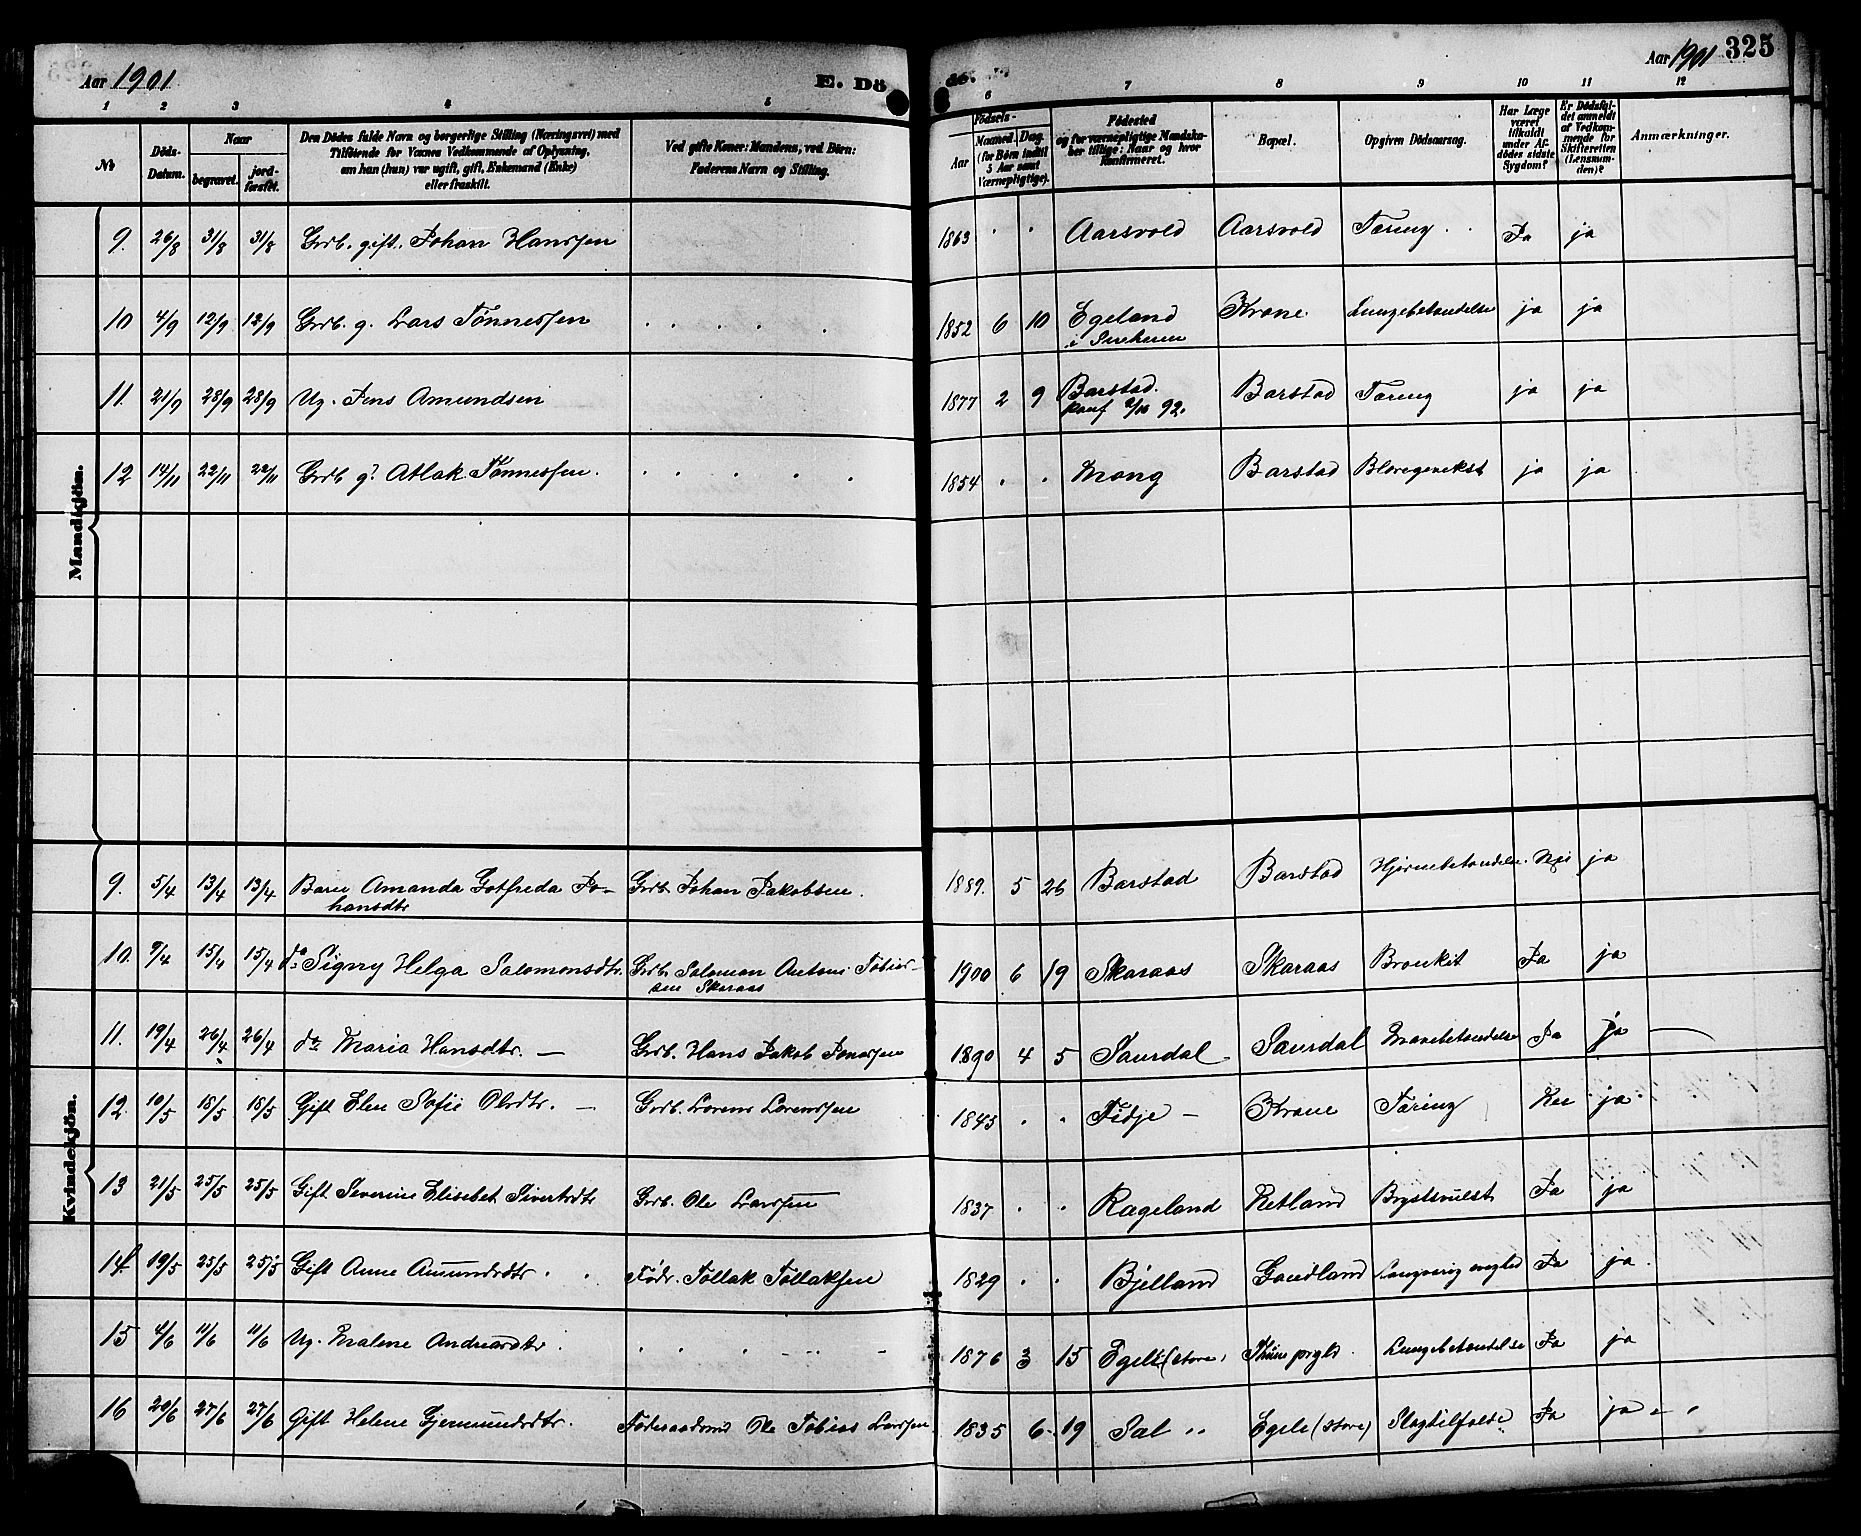 Aar 1901
E. Dö
de.
Aar 1901
325
1 2 3 4 5 6 7 8 9 10 11 12
№
Döds-
Datum.
Naar
begravet.
jord-
fæstet.
Den Dödes fulde Navn og borgerlige Stilling (Næringsvei) med
Tilföiende for Voxnes Vedkommende af Oplysning,
om han (hun) var ugift, gift, Enkemand (Enke)
eller fraskilt.
Ved gifte Koner: Mandens, ved Börn:
Faderens Navn og Stilling.
Födsels-
Aar
Maaned. Dag.
(for Börn indtil
5 Aar samt
Værnepligtige).
Födested
og for værnepligtige Mandska-
ber tillige: Naar og hvor
konfirmeret.
Bopæl.
Opgiven Dödsaarsag.
Har Læge
været
tilkaldt
under Af-
dödes sidste
Sygdom?
Er Dödsfal-
det anmeldt
af Vedkom-
mende for
Skifteretten
(Lensman-
den)?
Anmærkninger.
Mandkjön.
9. 26/8 31/8 31/8 Grdb. gift. Johan Hanssen 1863 Aarsvold Aarsvold Tæring Ja ja
10 4/9 12/9 12/9 Grdb. g. Lars Tönnessen 1852 6 10 Egeland Krone Lungebetændelse ja ja
11. 21/9 28/9 28/9 Ug. Jens Amundsen 1877 2 9 Barstad. Barstad Tæring ja ja
92.
12 14/11 22/11 22/11 Grdb g. Atlak Tönnessen. 1854 Mong Barstad ja ja
Kvindekjön.
9. 5/4 13/4 13/4 Barn Amanda Gotfreda Jo- Grdb. Johan Jakobsen. 1889. 5 26 Barstad Barstad Hjernebetændelse. Nei ja
hansdtr
10. 9/4 15/4 15/4 do Signy Helga Salomonsdtr. Grdb. Salomon Antoni Tobias- 1900 6 19 Skaraas Skaraas Bronkit Ja ja
sen Skaraas
11. 19/4 26/4 26/4 do Maria Hansdtr. — Grdb. Hans Jakob Jonassen 1890 4 5 Saurdal Saurdal Mavebetændelse Ja ja
12. 10/5 18/5 18/5 Gift Elen Sofie Olsdtr. — Grdb. Lorens Lorenssen 1843 Tidje — Krone Tæring ja
13 21/5 25/5 25/5 Gift Severine Elisebet Sivertsdtr Grdb. Ole Larssen 1837 Rægeland Ketland Brystsvulst Ja ja
14. 19/5 25/5 25/5 Gift Anne Amundsdtr Födr. Tollak Tollaksen 1829 Bjelland Gaudland Ja ja
15 4/6 11/6 11/6 Ug. Malene Andreasdtr 1876 3 15 Egele (store) Lungebetændelse Ja ja
16 20/6 27/6 27/6 Gift Helene Gjermundsdtr. Föderaadsmd Ole Tobias Larssen 1835 6 19 Sæl Egele (store) Slagtilfælde Ja ja